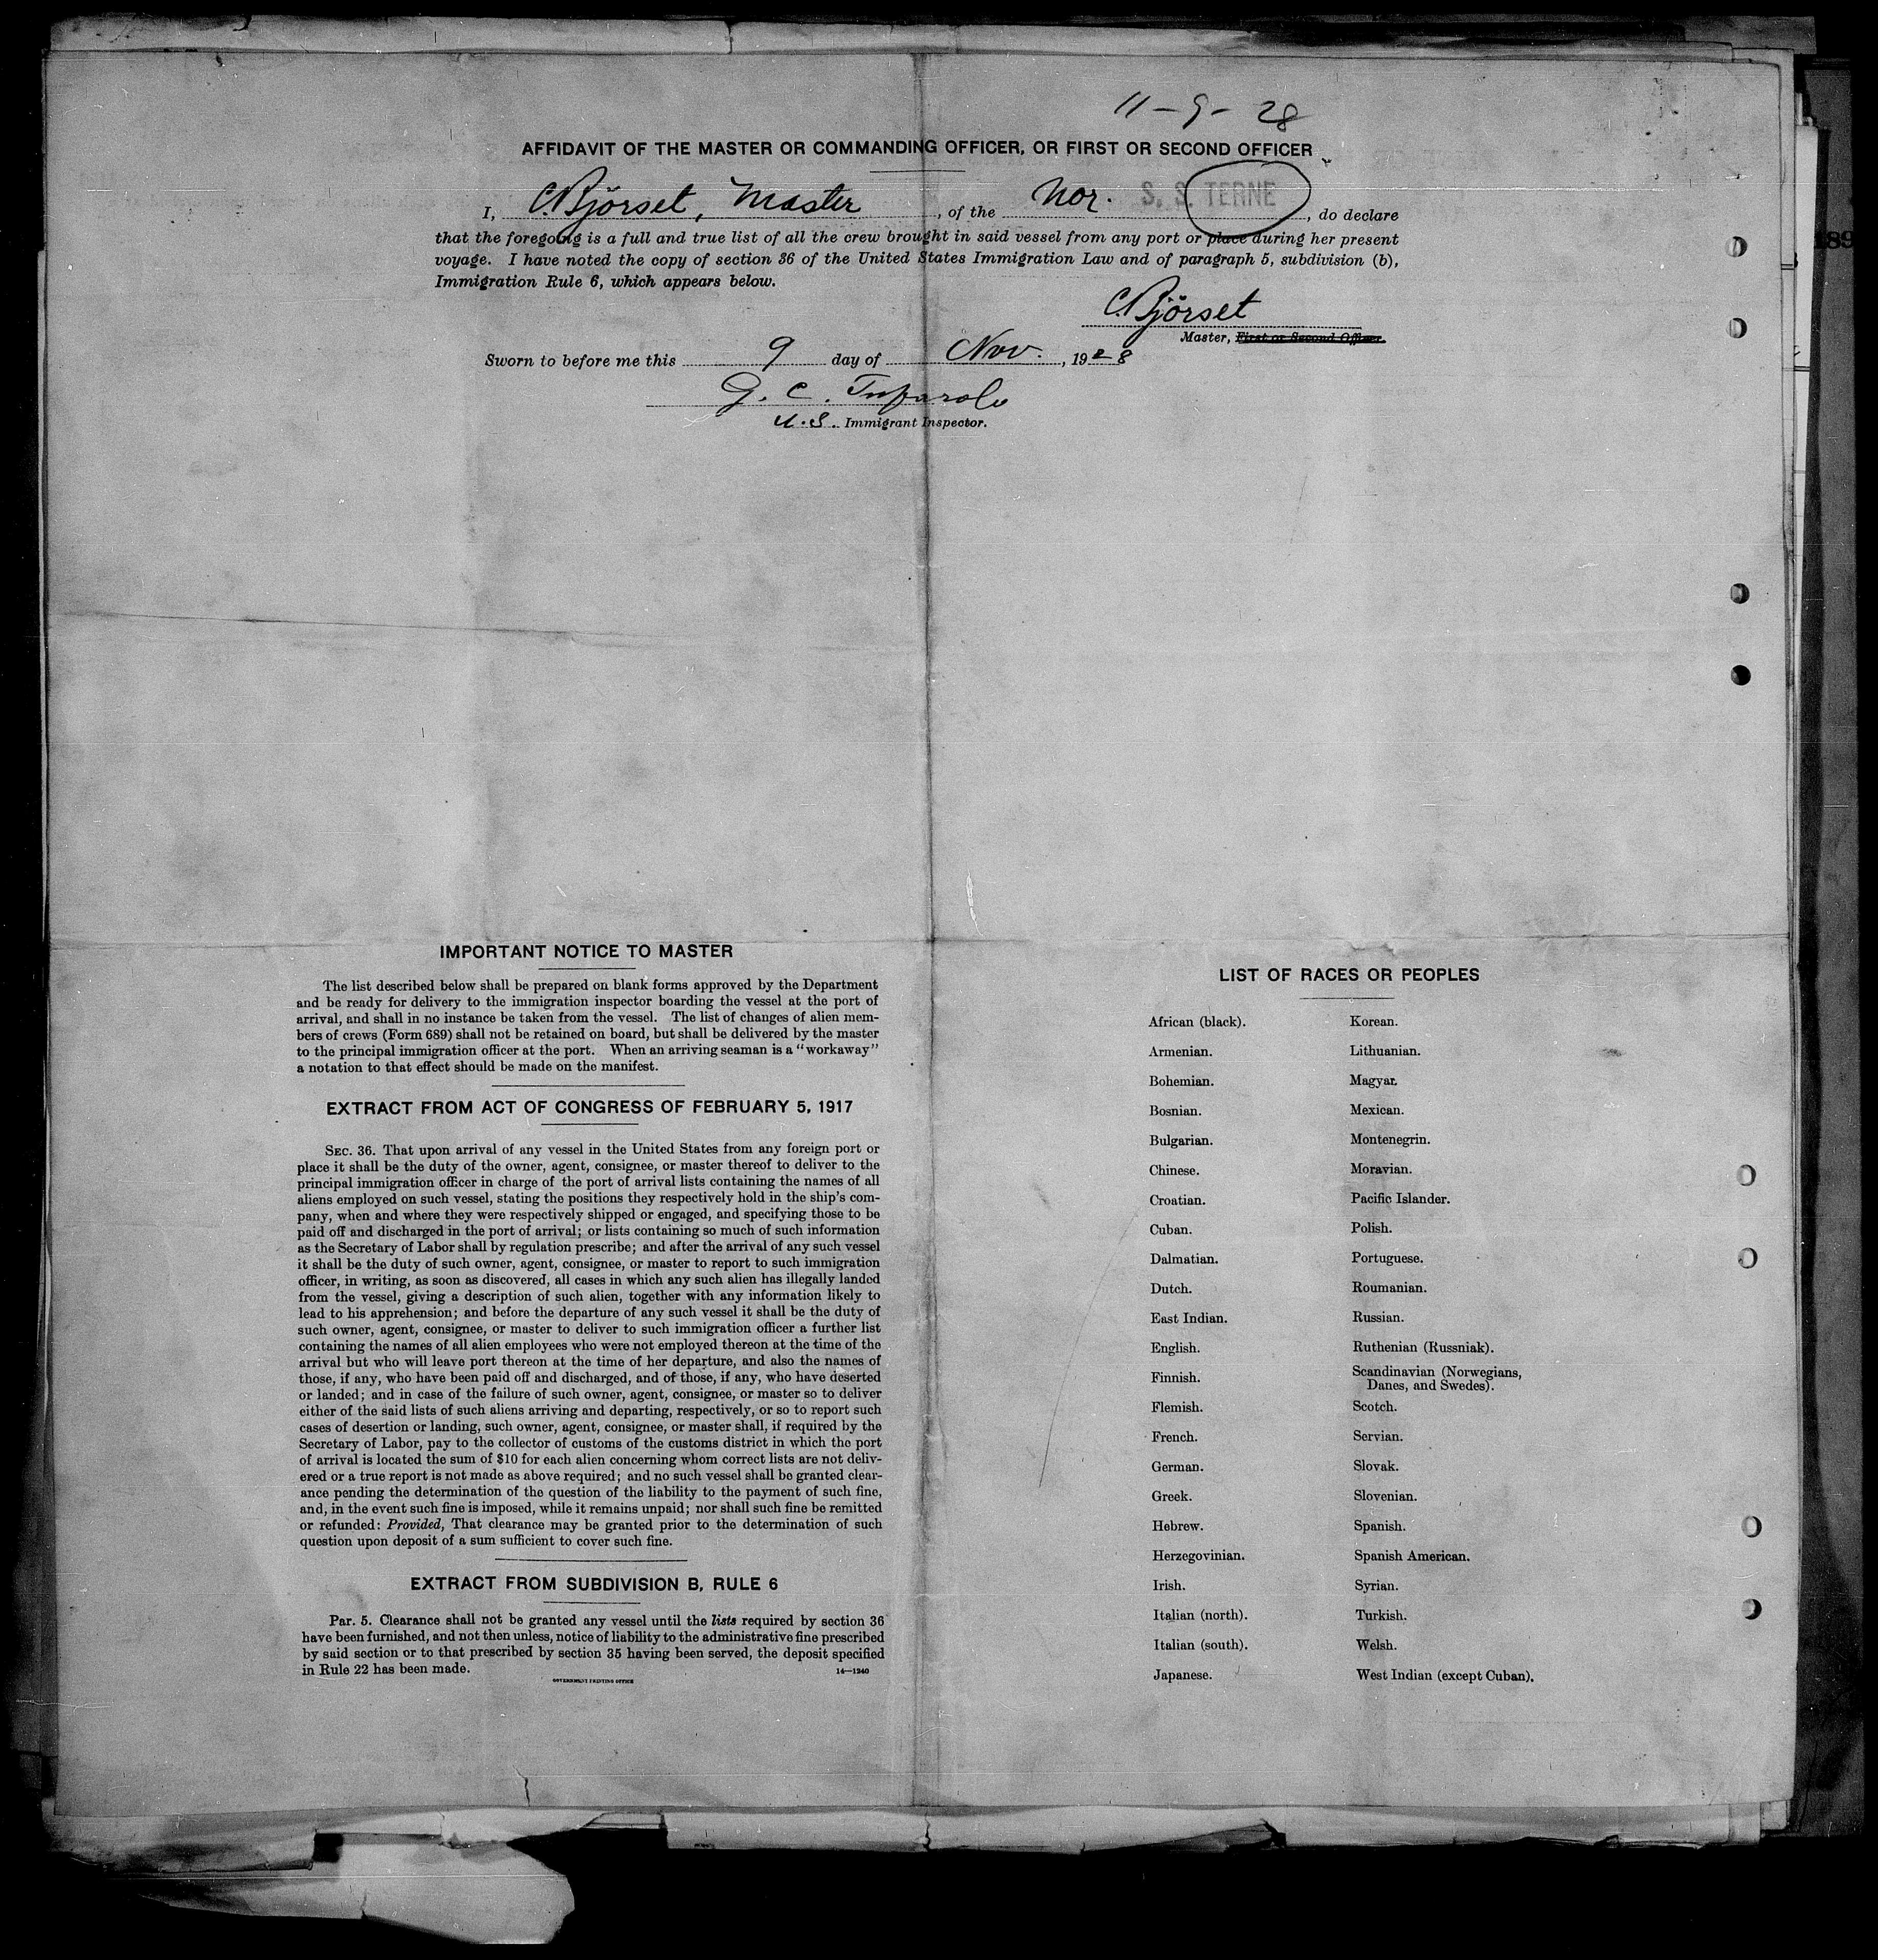 11-9-28
AFFIDAVIT OF THE MASTER OR COMMANDING OFFICER, OR FIRST OR SECOND OFFICER
I, C. Björset, Master, of the Nor. S. S. TERNE, do declare
that the foregoing is a full and true list of all the crew brought in said vessel from any port or place during her present
voyage. I have noted the copy of section 36 of the United States Immigration Law and of paragraph 5, subdivision (b),
Immigration Rule 6, which appears below.
C. Björset
Master, First or Second Officer.
Sworn to before me this 9 day of Nov., 1928
G. C.
U.S. Immigrant Inspector.
IMPORTANT NOTICE TO MASTER
The list described below shall be prepared on blank forms approved by the Department
and be ready for delivery to the immigration inspector boarding the vessel at the port of
arrival, and shall in no instance be taken from the vessel. The list of changes of alien mem-
bers of crews (Form 689) shall not be retained on board, but shall be delivered by the master
to the principal immigration officer at the port. When an arriving seaman is a "workaway"
a notation to that effect should be made on the manifest.
EXTRACT FROM ACT OF CONGRESS OF FEBRUARY 5, 1917
SEC. 36. That upon arrival of any vessel in the United States from any foreign port or
place it shall be the duty of the owner, agent, consignee, or master thereof to deliver to the
principal immigration officer in charge of the port of arrival lists containing the names of all
aliens employed on such vessel, stating the positions they respectively hold in the ship's com-
pany, when and where they were respectively shipped or engaged, and specifying those to be
paid off and discharged in the port of arrival; or lists containing so much of such information
as the Secretary of Labor shall by regulation prescribe; and after the arrival of any such vessel
it shall be the duty of such owner, agent, consignee, or master to report to such immigration
officer, in writing, as soon as discovered, all cases in which any such alien has illegally landed
from the vessel, giving a description of such alien, together with any information likely to
lead to his apprehension; and before the departure of any such vessel it shall be the duty of
such owner, agent, consignee, or master to deliver to such immigration officer a further list
containing the names of all alien employees who were not employed thereon at the time of the
arrival but who will leave port thereon at the time of her departure, and also the names of
those, if any, who have been paid off and discharged, and of those, if any, who have deserted
or landed; and in case of the failure of such owner, agent, consignee, or master so to deliver
either of the said lists of such aliens arriving and departing, respectively, or so to report such
cases of desertion or landing, such owner, agent, consignee, or master shall, if required by the
Secretary of Labor, pay to the collector of customs of the customs district in which the port
of arrival is located the sum of $10 for each alien concerning whom correct lists are not deliv-
ered or a true report is not made as above required; and no such vessel shall be granted clear-
ance pending the determination of the question of the liability to the payment of such fine,
and, in the event such fine is imposed, while it remains unpaid; nor shall such fine be remitted
or refunded: Provided, That clearance may be granted prior to the determination of such
question upon deposit of a sum sufficient to cover such fine.
EXTRACT FROM SUBDIVISION B, RULE 6
Par. 5. Clearance shall not be granted any vessel until the lists required by section 36
have been furnished, and not then unless, notice of liability to the administrative fine prescribed
by said section or to that prescribed by section 35 having been served, the deposit specified
in Rule 22 has been made. 14—1240
GOVERNMENT PRINTING OFFICE
LIST OF RACES OR PEOPLES
African (black). Korean.
Armenian. Lithuanian.
Bohemian. Magyar.
Bosnian. Mexican.
Bulgarian. Montenegrin.
Chinese. Moravian.
Croatian. Pacific Islander.
Cuban. Polish.
Dalmatian. Portuguese.
Dutch. Roumanian.
East Indian. Russian.
English. Ruthenian (Russniak).
Finnish. Scandinavian (Norwegians,
Danes, and Swedes).
Flemish. Scotch.
French. Servian.
German. Slovak.
Greek. Slovenian.
Hebrew. Spanish.
Herzegovinian. Spanish American.
Irish. Syrian.
Italian (north). Turkish.
Italian (south). Welsh.
Japanese. West Indian (except Cuban).